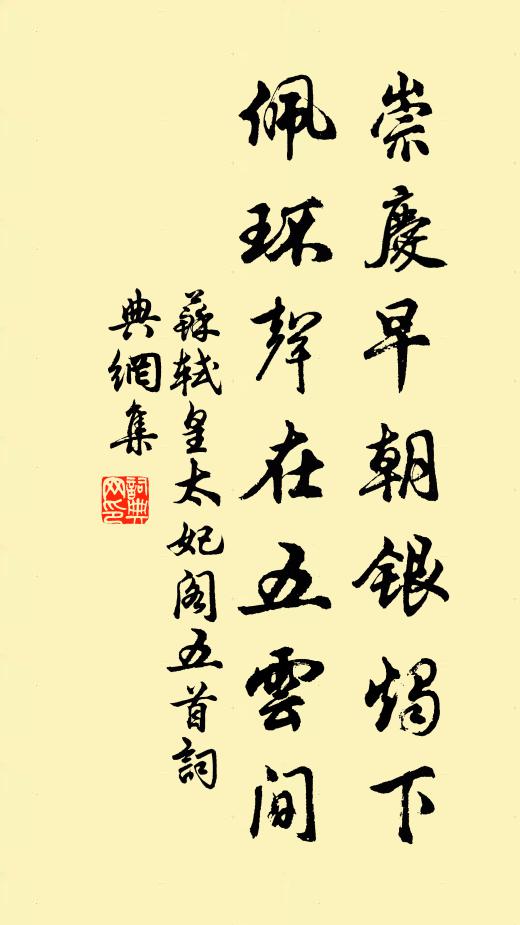 崇慶早朝銀燭下
佩環聲在五雲間
蘇軾皇太妃閣五首詞
典網集
詞典網印